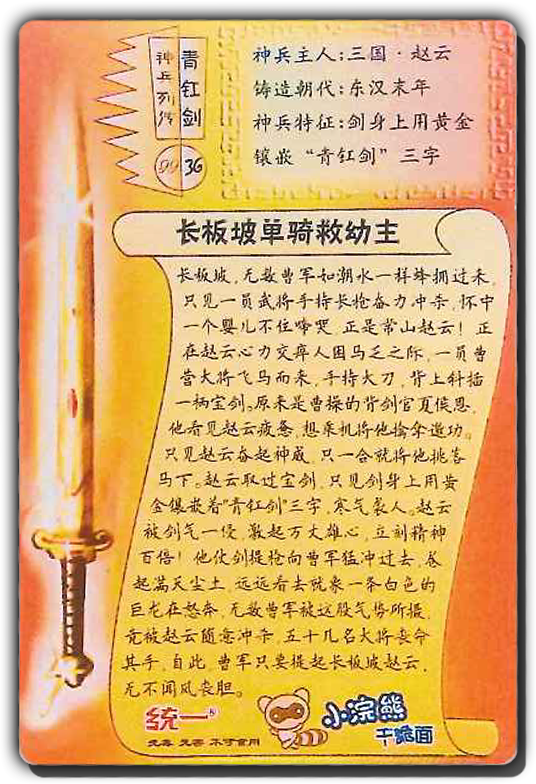 神兵列传
青釭剑
99 36
神兵主人:三国·赵云
铸造朝代:东汉末年
神兵特征:剑身上用黄金
镶嵌“青釭剑”三字
长板坡单骑救幼主
长板坡,无数曹军如潮水一样蜂拥过来,
只见一员武将手持长枪奋力冲杀,怀中
一个婴儿不住啼哭,正是常山赵云!正
在赵云心力交瘁人困马乏之际,一员曹
营大将飞马而来,手持大刀,背上斜插
一柄宝剑。原来是曹操的背剑官夏侯恩,
他看见赵云疲惫,想乘机将他擒拿邀功。
只见赵云奋起神威,只一合就将他挑落
马下。赵云取过宝剑,只见剑身上用黄
金镶嵌着“青釭剑”三字,寒气袭人。赵云
被剑气一侵,激起万丈雄心,立刻精神
百倍!他仗剑提枪向曹军猛冲过去,卷
起满天尘土,远远看去就象一条白色的
巨龙在怒奔,无数曹军被这股气势所摄,
竟被赵云随意冲杀,五十几名大将丧命
其手,自此,曹军只要提起长板坡赵云,
无不闻风丧胆。
统一®
小浣熊
干脆面
无毒 无害 不可食用